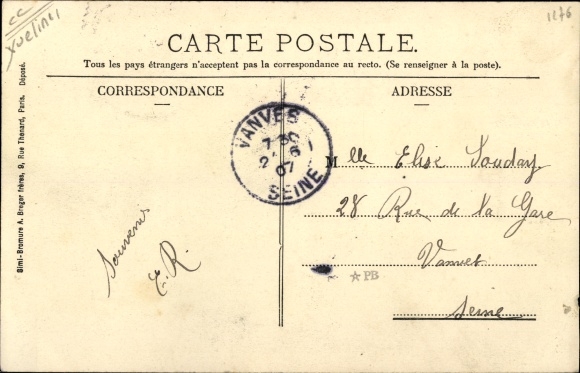 CC
1276
CARTE POSTALE.
Tous les pays étrangers n'acceptent pas la correspondance au recto. (Se renseigner à la poste).
CORRESPONDANCE
ADRESSE
Simi-Bromure A. Breger frères, 9, Rue Thenard, Paris. Déposé.
VANVES
7 30
2 6
07
SEINE
Mlle Elise Souday
28 Rue de la Gare
Vanves
Seine
Souvenir
E. R.
PB